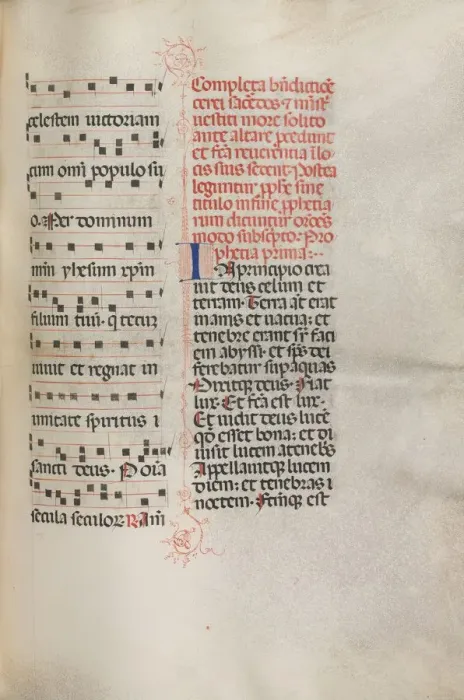 celestem uictoriam
cum omi populo su
o. Per dominum
nrm yhesum xpm
filium tuu. q tecuz
uiuit et regnat in
unitate spiritus s
sancti deus. P oia
secula seculoz R Am
Completa bndictioe
cerei sacerdos ⁊ mistri
uestiti more solito
ante altare procedunt
et fca reuerentia i lo
cis suis sedent. Postea
leguntur pphe sine
titulo in fine pphetia
rum dicuntur orões
modo subscpto. Pro
phetia prima:-
In principio crea
uit deus celum et
terram. Terra at erat
inanis et uacua: et
tenebre erant sr faci
em abyssi: et sps dei
ferebatur sup aquas
Dixitq deus. Fiat
lux. Et fca est lux.
Et uidit deus luce
qd esset bona: et di
uisit lucem a tenebs
Appellauitq lucem
diem: et tenebras
noctem. Ftmq est